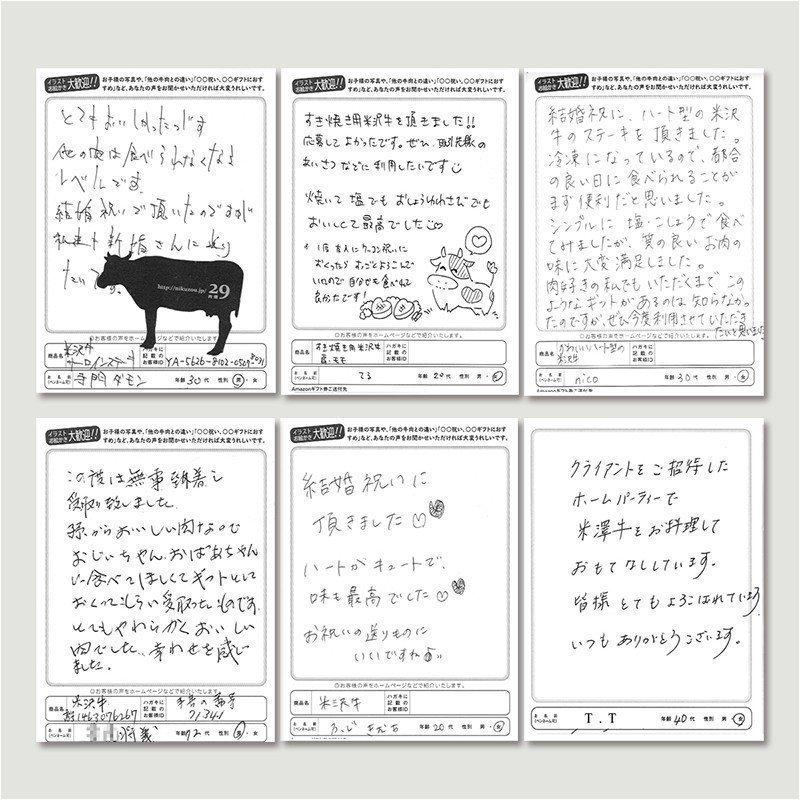 イラスト お絵かき 大歓迎!!
お子様の写真や、「他の牛肉との違い」「〇〇祝い、〇〇ギフトにおすすめ」など、あなたの声をお聞かせいただければ大変うれしいです。
とてもおいしかったです
他の肉は食べられなくなる
レベルです。
結婚祝いで頂いたのですが
私達も新婚さんに送り
たいです。
http://nikuzou.jp/ 29
◎お客様の声をホームページなどで紹介いたします。
商品名 米沢牛 サーロインステーキ
ハガキに記載のお客様ID YA-5626-8102-0569-8031
お名前 (ペンネーム可)
年齢 30代 性別 男・女
イラスト お絵かき 大歓迎!!
お子様の写真や、「他の牛肉との違い」「〇〇祝い、〇〇ギフトにおすすめ」など、あなたの声をお聞かせいただければ大変うれしいです。
すき焼き用米沢牛を頂きました!!
応募してよかったです。ぜひ、取引先様の
あいさつなどに利用したいです
焼いて塩でもおしょうゆわさびでも
おいしくて最高でした
1度友人にケッコン祝いに
おくったらすごくよろこんで
いたので自分でも食べれて
良かったです!
◎お客様の声をホームページなどで紹介いたします。
商品名 すき焼き用米沢牛 肩・モモ
ハガキに記載のお客様ID
お名前 (ペンネーム可) てる
年齢 20代 性別 男・女
Amazonギフト券ご送付先
イラスト お絵かき 大歓迎!!
お子様の写真や、「他の牛肉との違い」「〇〇祝い、〇〇ギフトにおすすめ」など、あなたの声をお聞かせいただければ大変うれしいです。
結婚祝に、ハート型の米沢
牛のステーキを頂きました。
冷凍になっているので、都合
の良い日に食べられることが
まず便利だと思いました。
シンプルに塩・こしょうで食べ
てみましたが、質の良いお肉の
味に大変満足しました。
肉好きの私でもいただくまでこの
ようなギフトがあるのは知らなかっ
たのですが、ぜひ今度利用させていただき
たいと思いました
◎お客様の声をホームページなどで紹介いたします。
商品名 かわいいハート型の 米沢牛
ハガキに記載のお客様ID
お名前 (ペンネーム可) nico
年齢 30代 性別 男・女
Amazonギフト券ご送付先
イラスト お絵かき 大歓迎!!
お子様の写真や、「他の牛肉との違い」「〇〇祝い、〇〇ギフトにおすすめ」など、あなたの声をお聞かせいただければ大変うれしいです。
この度は無事到着し
受取り致しました。
孫からおいしい肉なので
おじいちゃん、おばあちゃん
に食べてほしくてギフトとして
おくってもらい受取ったものです。
とてもやわらかくおいしい
肉でした。幸わせを感じ
ました。
◎お客様の声をホームページなどで紹介いたします。
商品名 米沢牛
ハガキに記載のお客様ID 71341
お名前 (ペンネーム可)
年齢 72代 性別 男・女
イラスト お絵かき 大歓迎!!
お子様の写真や、「他の牛肉との違い」「〇〇祝い、〇〇ギフトにおすすめ」など、あなたの声をお聞かせいただければ大変うれしいです。
結婚祝いに
頂きました
ハートがキュートで、
味も最高でした
お祝いの送りものに
いいですね♪
◎お客様の声をホームページなどで紹介いたします。
商品名 米沢牛
ハガキに記載のお客様ID
お名前 (ペンネーム可)
年齢 20代 性別 男・女
クライアントをご招待した
ホームパーティーで
米澤牛をお料理して
おもてなししています。
皆様とてもよろこばれています
いつもありがとうございます。
お名前 (ペンネーム可) T.T
年齢 40代 性別 男・女